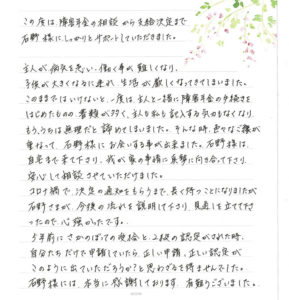 この度は、障害年金の相談から支給決定まで
石野様に、しっかりとサポートしていただきました。
主人が病気を患い、働く事が難しくなり、
子供が大きくなるに連れ、生活が厳しくなってきてしまいました。
このままではいけないと、一度は、主人と一緒に障害年金の手続きを
はじめたものの、書類が多く、主人も私も記入する気力もなくなり
もう、うちは無理だと諦めてしまいました。そんな時、色々なご縁が
重なって、石野様にお会いする事が出来ました。石野様は、
自宅まで来て下さり、我が家の事情に真摯に向き合って下さり、
安心して相談させていただけました。
コロナ禍で、決定の通知をもらうまで、長く待つことになりましたが
石野さまが、今後の流れを説明して下さり、見通しを立てて下さ
ったので、心強かったです。
5年前にさかのぼっての受給と、2級の認定がされた時、
自分たちだけで申請していたら、正しい申請、正しい認定が
このように出ていただろうか?と思わざるを得ませんでした。
石野様には、本当に感謝しております。有難うございました。